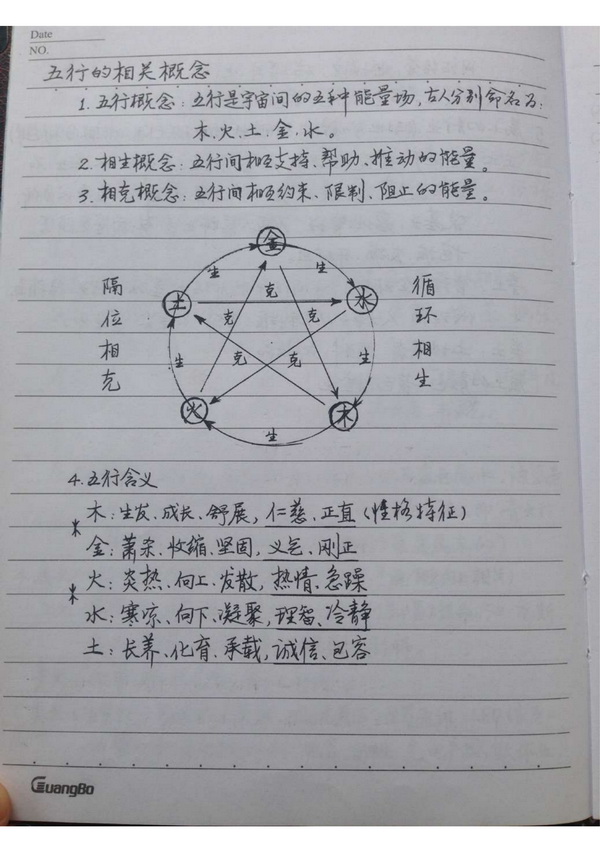 Date
NO.
五行的相关概念
1. 五行概念：五行是宇宙间的五种能量场，古人分别命名为：
木、火、土、金、水。
2. 相生概念：五行间相互支持、帮助、推动的能量。
3. 相克概念：五行间相互约束、限制、阻止的能量。
金
生 生
土 克 水
克 克
隔位相克
循环相生
生 克 克 生
火 木
生
4. 五行含义
木：生发、成长、舒展，仁慈、正直（性格特征）
金：萧杀、收缩、坚固，义气、刚正
火：炎热、向上、发散，热情、急躁
水：寒凉、向下、凝聚，理智、冷静
土：长养、化育、承载，诚信、包容
GuangBo